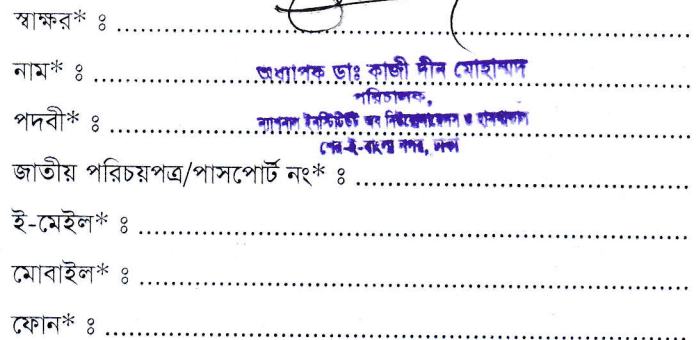 স্বাক্ষর* ঃ
নাম* ঃ .......... অধ্যাপক ডাঃ কাজী দীন মোহাম্মদ
পরিচালক,
পদবী* ঃ .......... ন্যাশনাল ইনস্টিটিউট অব নিউরোসায়েন্সেস ও হাসপাতাল
শের-ই-বাংলা নগর, ঢাকা
জাতীয় পরিচয়পত্র/পাসপোর্ট নং* ঃ ..........
ই-মেইল* ঃ ..........
মোবাইল* ঃ ..........
ফোন* ঃ ..........